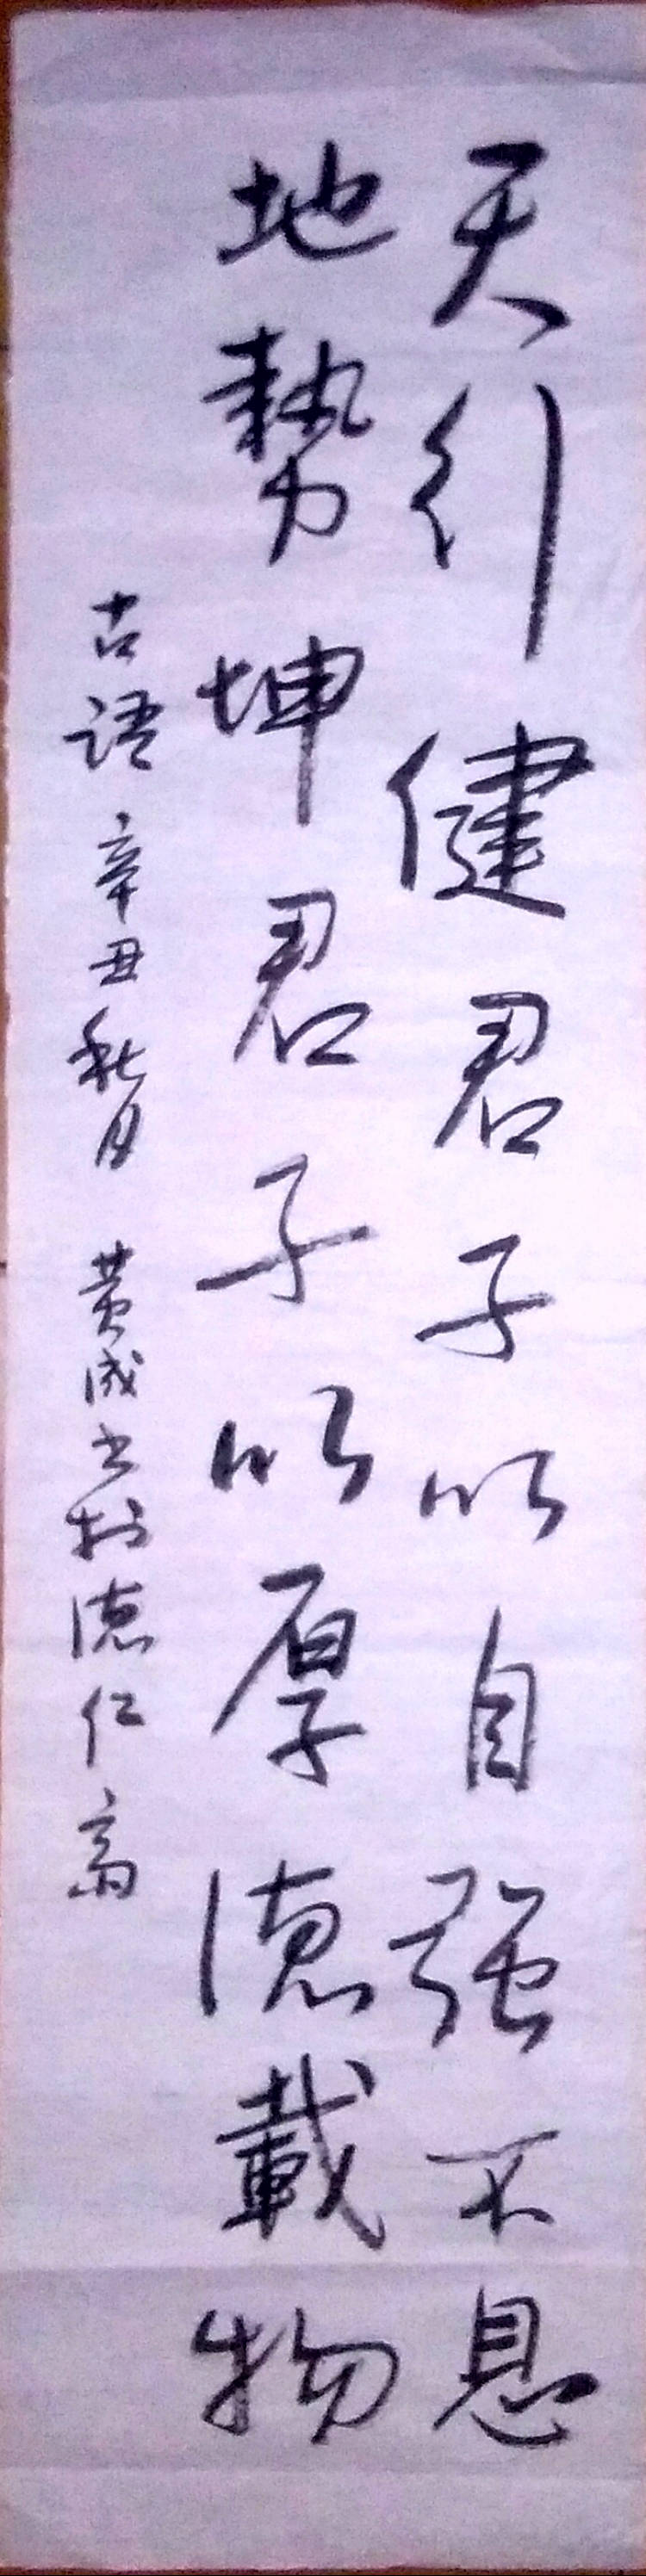 天行健君子以自强不息
地勢坤君子以厚德載物
古语辛丑秋月黄成书於德仁斋